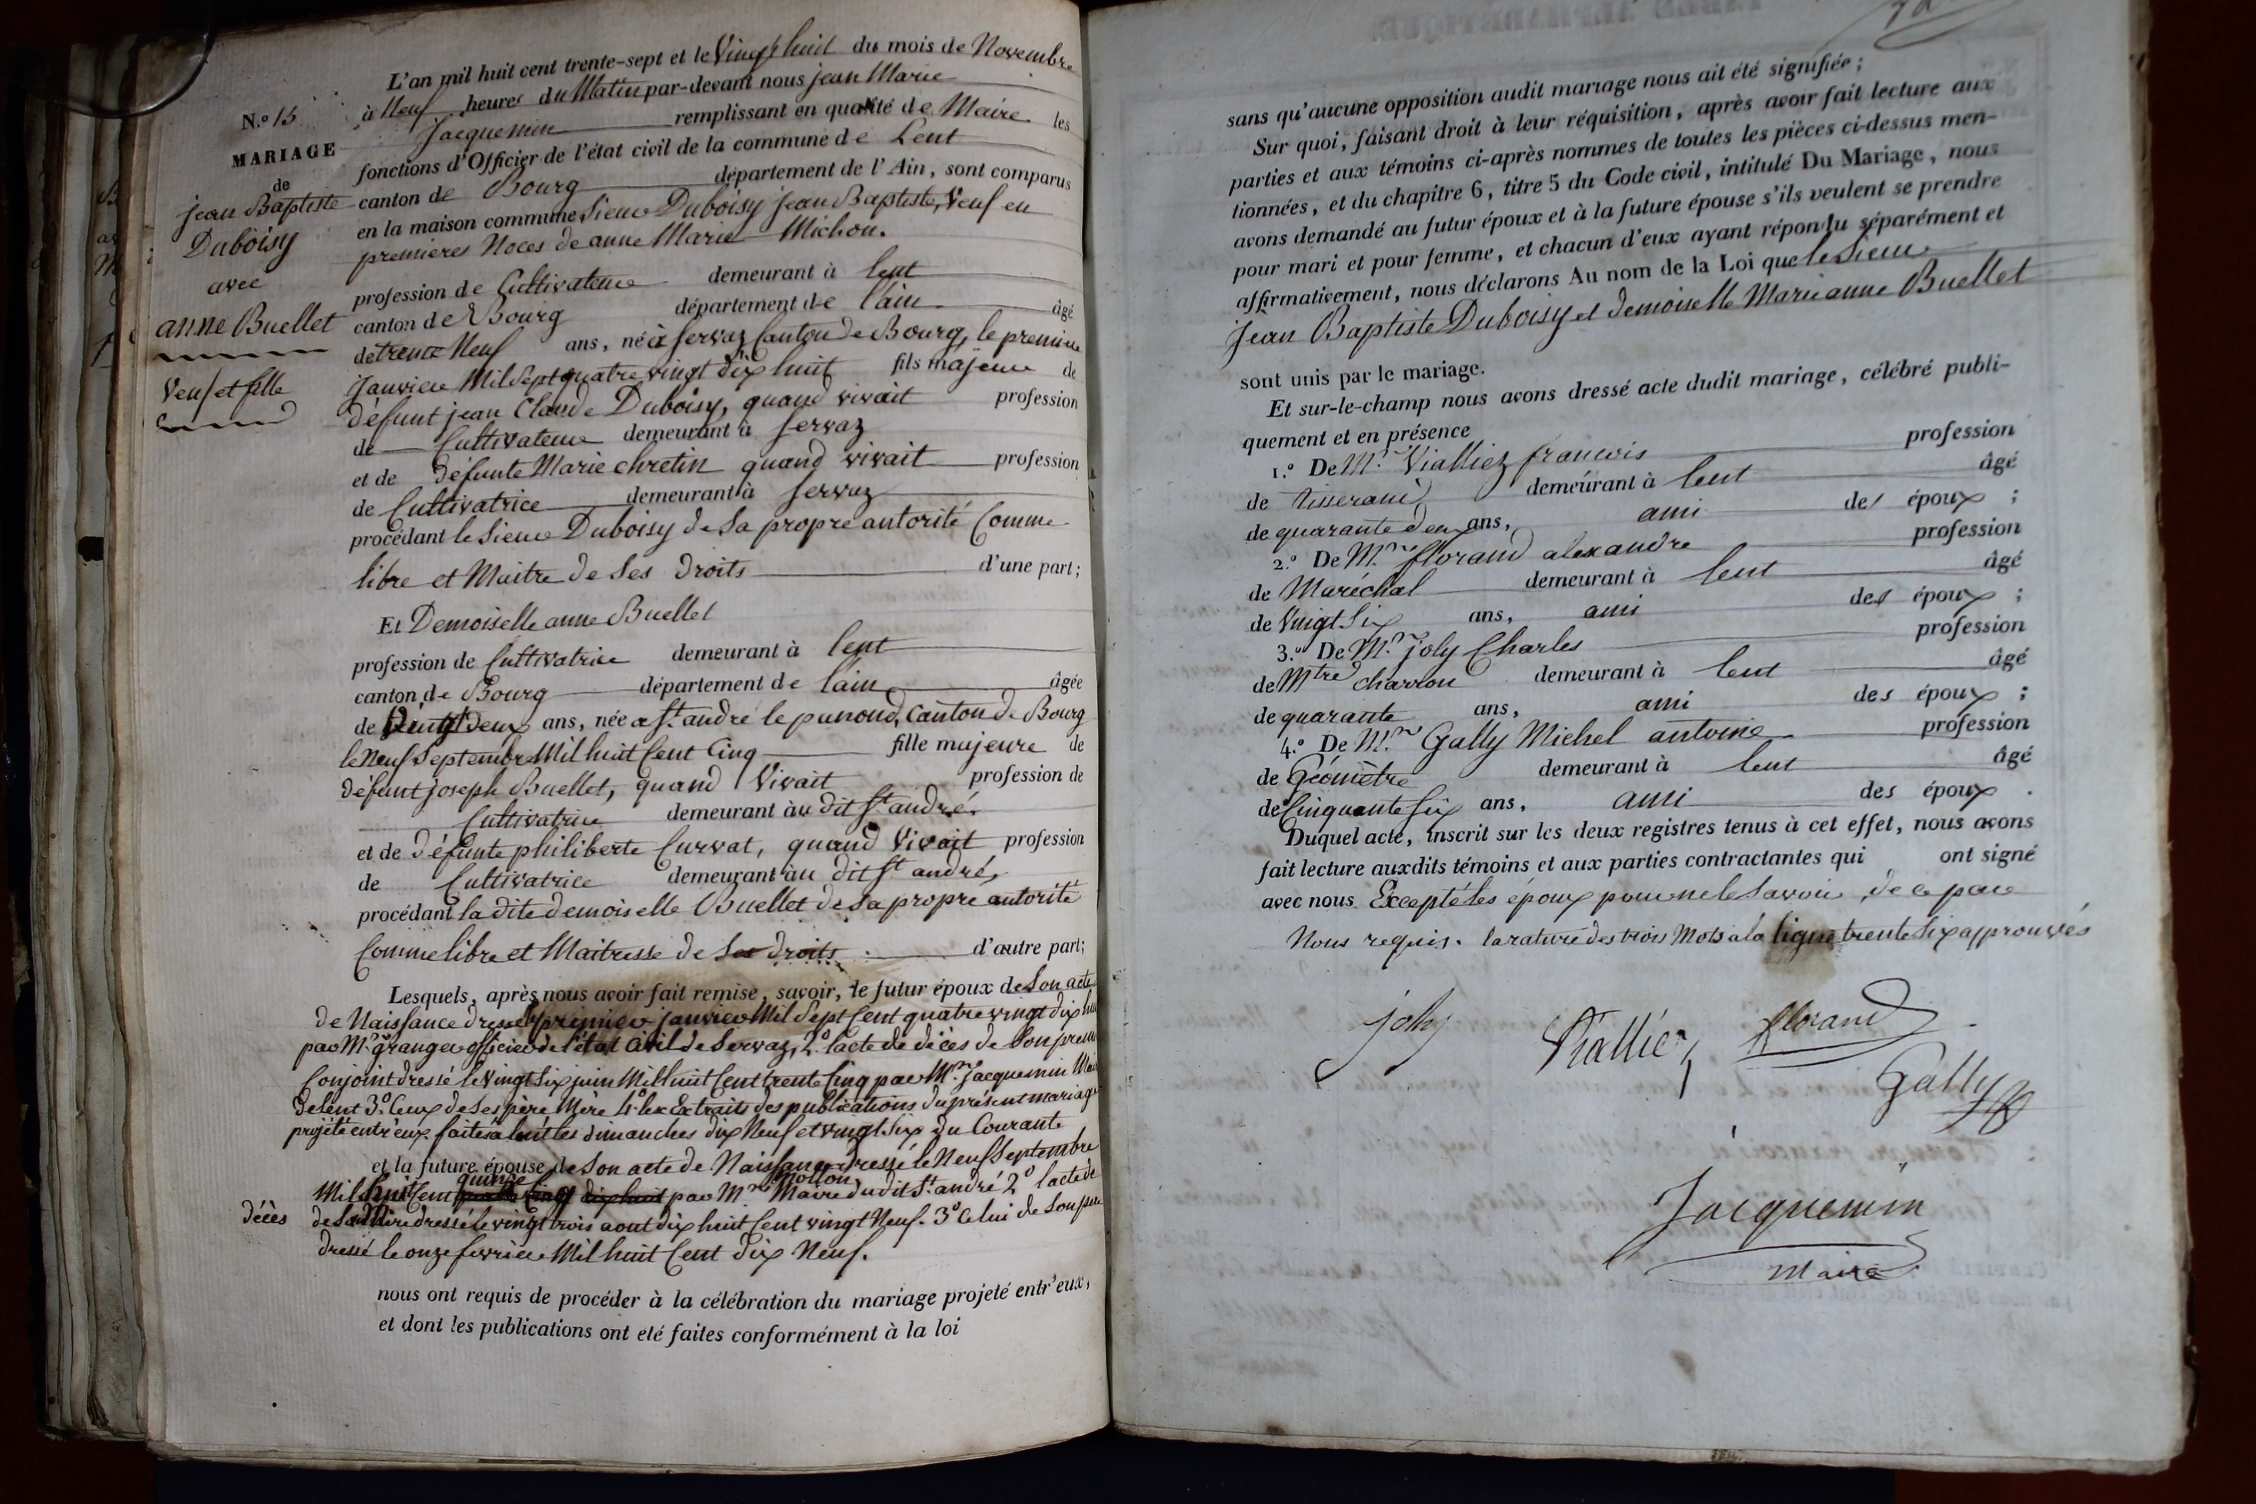 N.º 15
MARIAGE
de
jean Baptiste
Duboisy
avec
anne Buellet
Veuf et fille
L'an mil huit cent trente-sept et le Vingt huit du mois de Novembre
à Neuf heures du Matin par-devant nous jean Marie
Jacquemin remplissant en qualité de Maire les
fonctions d'Officier de l'état civil de la commune de Lent
canton de Bourg département de l'Ain, sont comparus
en la maison commune Sieur Duboisy Jean Baptiste, Veuf en
premieres Noces de anne Marie Michon.
profession de Cultivateur demeurant à lent
canton de Bourg département de l'ain âgé
de trente Neuf ans, né à Servaz Canton de Bourg, le premier
Janvier Mil Sept quatre vingt dix huit fils majeur de
défunt jean Claude Duboisy, quand vivait profession
de Cultivateur demeurant à Servaz
et de défunte Marie chretin quand vivait profession
de Cultivatrice demeurant à Servaz
procédant le Sieur Duboisy de Sa propre autorité Comme
libre et Maitre de Ses droits d'une part;
Et Demoiselle anne Buellet
profession de Cultivatrice demeurant à lent
canton de Bourg département de l'ain âgée
de Vingt deux ans, née a St. andré le panoud, Canton de Bourg
le Neuf Septembre Mil huit Cent Cinq fille majeure de
défunt joseph Buellet, quand Vivait profession de
Cultivatrice demeurant au dit St andré.
et de défunte philiberte Curvat, quand Vivait profession
de Cultivatrice demeurant au dit St andré,
procédant la dite demoiselle Buellet de Sa propre autorité
Comme libre et Maitresse de Ses droits d'autre part;
Lesquels, après nous avoir fait remise, savoir, le futur époux de Son acte
de Naissance dressé le premier janvier Mil Sept Cent quatre vingt dix huit
par Mr. granger officier de l'état Civil de Servaz, 2º lacte de décès de Son premier
Conjoint dressé le vingt Six juin Mil huit Cent trente Cinq par Mr. jacquemin Maire
de lent 3º. Ceux de Ses père Mère 4º. les Extraits des publications du présent mariage
projeté entr'eux faites à lent les dimanches dix Neuf et vingt Six du Courant
et la future épouse de Son acte de Naissance dressé le Neuf Septembre
quinze Mollon
Mil huit Cent dix huit par Mr Maire du dit St. andré 2º lacte de
décès de Sa Mère dressé le vingt trois aout dix huit Cent vingt Neuf. 3º Celui de Son père
dressé le onze fevrier Mil huit Cent dix Neuf.
nous ont requis de procéder à la célébration du mariage projeté entr'eux,
et dont les publications ont été faites conformément à la loi
sans qu'aucune opposition audit mariage nous ait été signifiée;
Sur quoi, faisant droit à leur réquisition, après avoir fait lecture aux
parties et aux témoins ci-après nommes de toutes les pièces ci-dessus men-
tionnées, et du chapitre 6, titre 5 du Code civil, intitulé Du Mariage, nous
avons demandé au futur époux et à la future épouse s'ils veulent se prendre
pour mari et pour femme, et chacun d'eux ayant répondu séparément et
affirmativement, nous déclarons Au nom de la Loi que le Sieur
Jean Baptiste Duboisy et demoiselle Marie anne Buellet
sont unis par le mariage.
Et sur-le-champ nous avons dressé acte dudit mariage, célébré publi-
quement et en présence
1.º De Mr. Vialliez francois profession
de tisserand demeurant à lent âgé
de quarante deux ans, ami des époux ;
2.º De Mr. florand alexandre profession
de Maréchal demeurant à lent âgé
de Vingt Six ans, ami des époux ;
3.º De Mr. joly Charles profession
de Mtre charron demeurant à lent âgé
de quarante ans, ami des époux ;
4.º De Mr. Gally Michel antoine profession
de Géomètre demeurant à lent âgé
de Cinquante Six ans, ami des époux .
Duquel acte, inscrit sur les deux registres tenus à cet effet, nous avons
fait lecture auxdits témoins et aux parties contractantes qui ont signé
avec nous Excepté les époux pour ne le Savoir, de ce par
Nous requis. la rature des trois Mots a la ligne trente Six approuvés
joly
Viallier
florand
Gally
Jacquemin
Maire